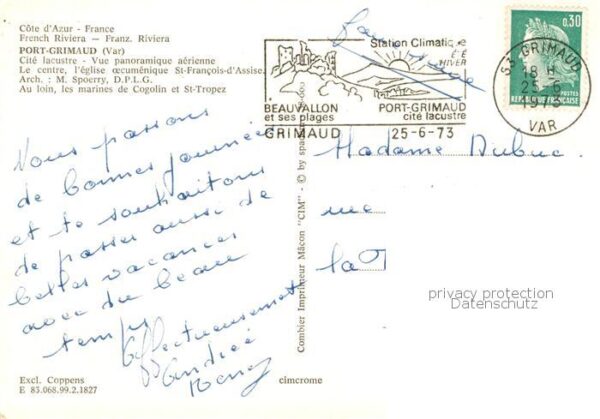 Côte d'Azur - France
French Riviera — Franz. Riviera
PORT-GRIMAUD (Var)
Cité lacustre - Vue panoramique aérienne
Le centre, l'église œcuménique St-François-d'Assise.
Arch. : M. Spoerry, D.P.L.G.
Au loin, les marines de Cogolin et St-Tropez
Nous passons
de bonnes journées
et te souhaitons
de passer aussi de
belles vacances
avec du beau
temps
Affectueusement
Andrée
Excl. Coppens
E 83.068.99.2.1827
Combier Imprimeur Mâcon "CIM" - © by
cimcrome
Station Climatique
ÉTÉ
HIVER
BEAUVALLON
et ses plages
PORT-GRIMAUD
cité lacustre
GRIMAUD 25-6-73
83 GRIMAUD
18 H
25-6
1973
VAR
0,30
POSTES
REPUBLIQUE FRANÇAISE
Madame Dubuc
rue
la
privacy protection
Datenschutz